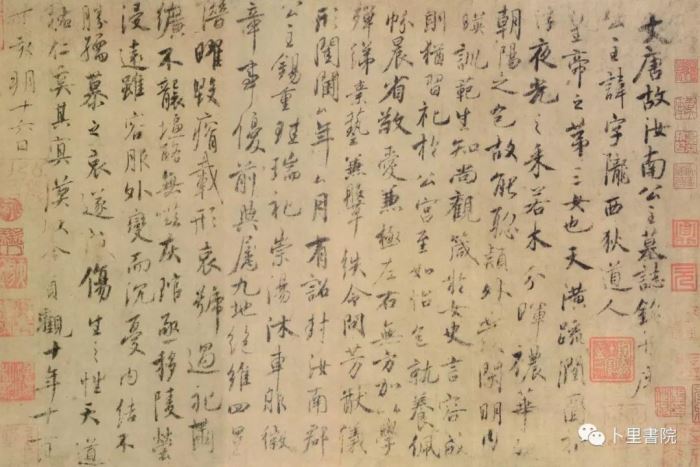 大唐故汝南公主墓誌銘并序
公主諱字隴西狄道人
皇帝之第三女也天潢疏潤圓折
浮夜光之采若木分暉穠華照
朝陽之色故能聡穎外發閑明內
暎訓範生知尚觀箴於女史言容成
則猶習礼於公宮至如怡色就養佩
帉晨省敬愛兼極左右無方加以學
殫綈素藝兼鞶紩令問芳猷儀
形閨閫△年△月有詔封汝南郡
公主錫重珪瑞礼崇湯沐車服徽
章事優前典屬九地絕維四星
潛曜毀瘠載形哀號過礼繭
纊不襲塩酪無嗞灰琯亟移陵塋
浸遠雖容服外變而沉憂內結不
勝孺慕之哀遂成傷生之性天道
祐仁奚其冥漠以今貞觀十年十一月
丁亥朔十六日
卜里書院